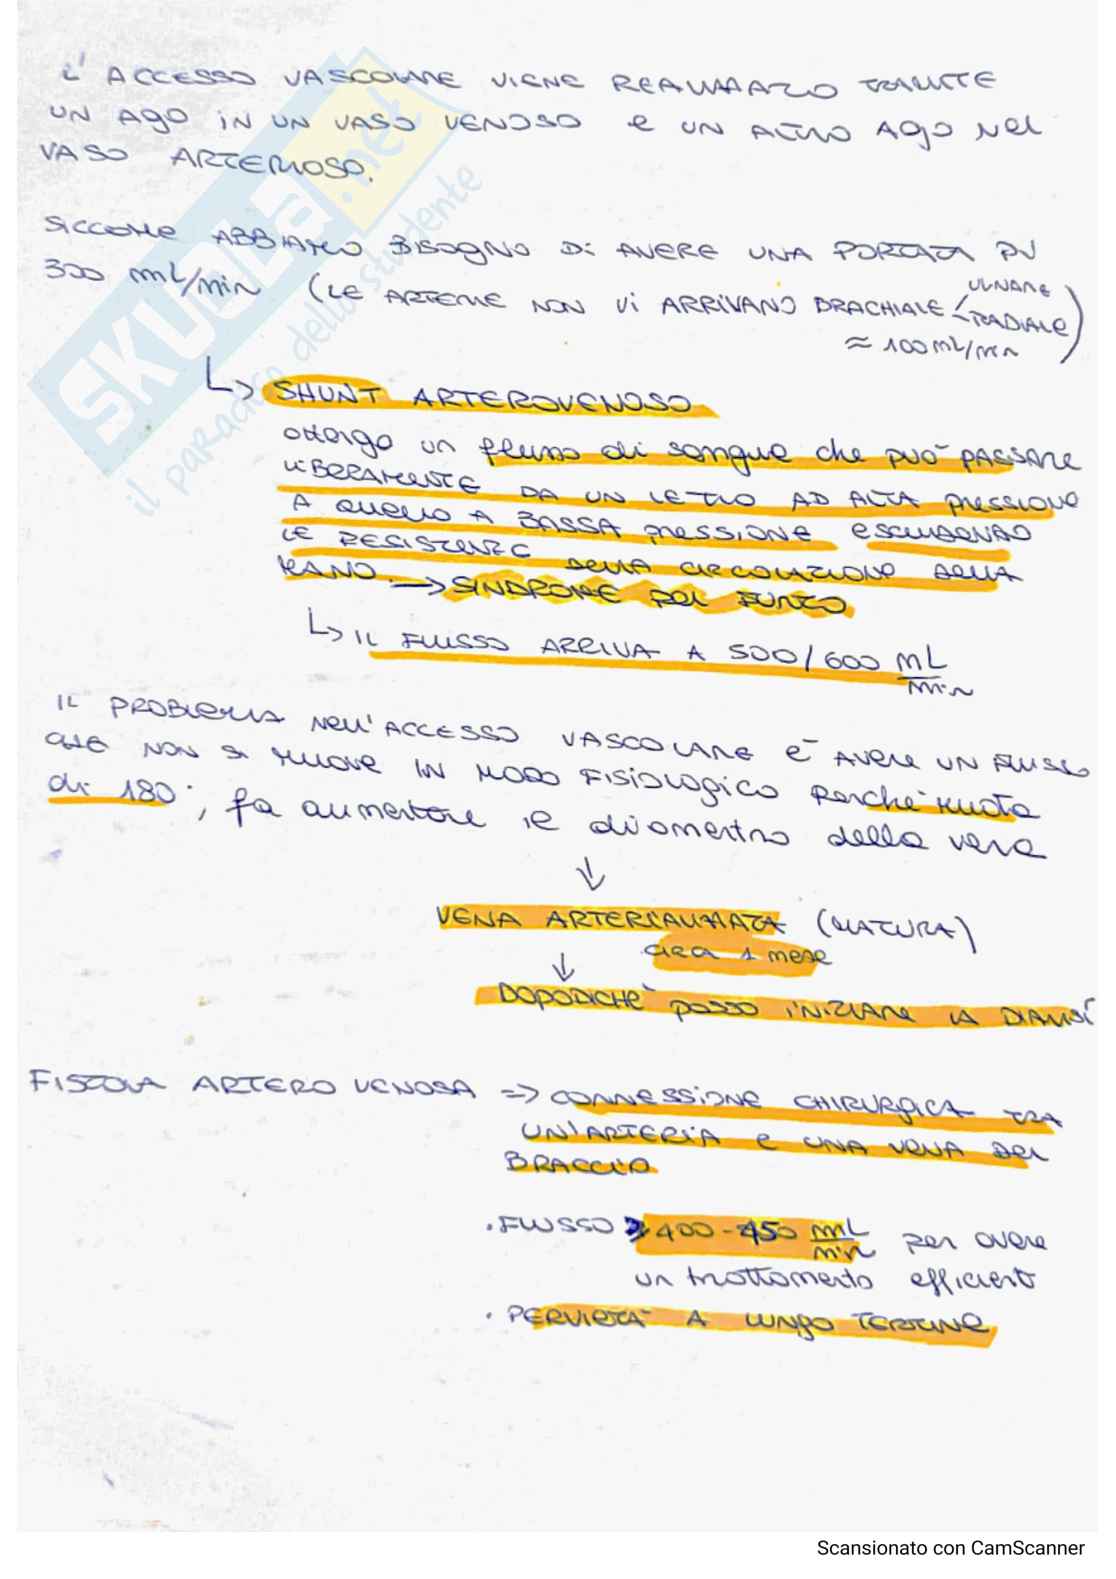 L'ACCESSO VASCOLARE VIENE REALIZZATO TRAMITE
UN AGO IN UN VASO VENOSO e UN ALTRO AGO Nel
VASO ARTERIOSO.
SICCOME ABBIAMO BISOGNO Di AVERE UNA PORTATA DI
300 mL/min (LE ARTERIE NON Vi ARRIVANO BRACHIALE ULNARE
RADIALE)
≈ 100 mL/min
↳ SHUNT ARTEROVENOSO
ottengo un flusso di sangue che può PASSARE
LIBERAMENTE DA UN LETTO AD ALTA pressione
A quello A BASSA pressione escludendo
LE RESISTENZE DELLA CIRCOLAZIONE DELLA
MANO. → SINDROME DEL FURTO
↳ IL FLUSSO ARRIVA A 500/600 mL/min
IL PROBLEMA Nell'ACCESSO VASCOLARE E' AVERE UN FLUSSO
CHE NON SI MUOVE IN MODO FISIOLOGICO Perché RUOTA
di 180°, fa aumentare il diametro della vena
↓
VENA ARTERIALIZZATA (MATURA)
↓ circa 1 mese
DOPODICHÉ posso INIZIARE LA DIALISI
FISTOLA ARTERO VENOSA => CONNESSIONE CHIRURGICA TRA
UN'ARTERIA e UNA VENA DEL
BRACCIO
. FLUSSO ≥ 400-450 mL/min per avere
un trattamento efficiente
. PERVIETA' A LUNGO TERMINE
SKUOLA.net
il paradiso dello studente
Scansionato con CamScanner